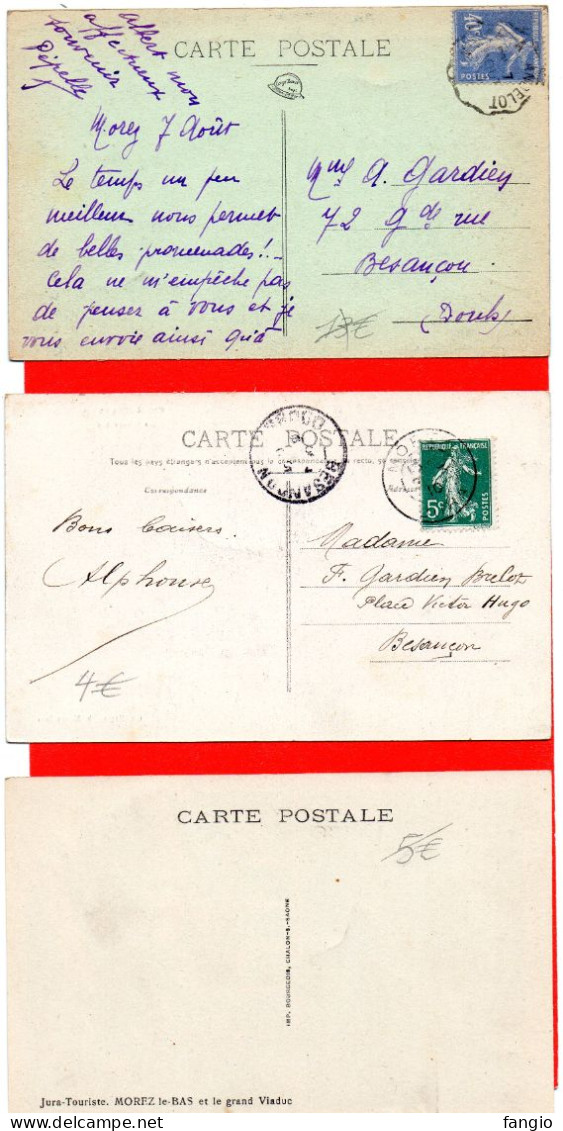 CARTE POSTALE
Albert mon
affectueux
souvenir
Pipelle
40c
POSTES
ELOT
Morez 7 Août
Le temps un peu
meilleur nous permet
de belles promenades!..
Cela ne m'empêche pas
de penser à vous et je
vous envoie ainsi qu'à
Mme A. Gardien
72 Gde rue
Besançon
(Doubs)
13€
CARTE POSTALE
Tous les pays étrangers n'acceptent pas la correspondance au recto, se
Correspondance
BESANÇON
DOUBS
MOREZ
REPUBLIQUE FRANÇAISE
5c
POSTES
Bons baisers
Alphonse
Madame
F. Gardien Brelot
Place Victor Hugo
Besançon
4€
CARTE POSTALE
5€
IMP. BOURGEOIS, CHALON-S.-SAONE
Jura-Touriste. MOREZ le-BAS et le grand Viaduc
fangio